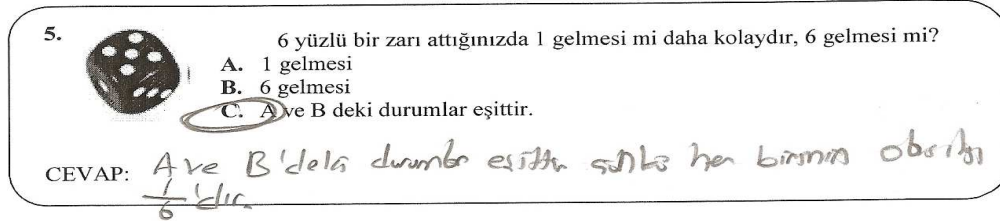 5.
6 yüzlü bir zarı attığınızda 1 gelmesi mi daha kolaydır, 6 gelmesi mi?
A. 1 gelmesi
B. 6 gelmesi
C. A ve B deki durumlar eşittir.
CEVAP: A ve B'deki durumlar eşittir çünkü her birinin olasılığı
1/6'dır.